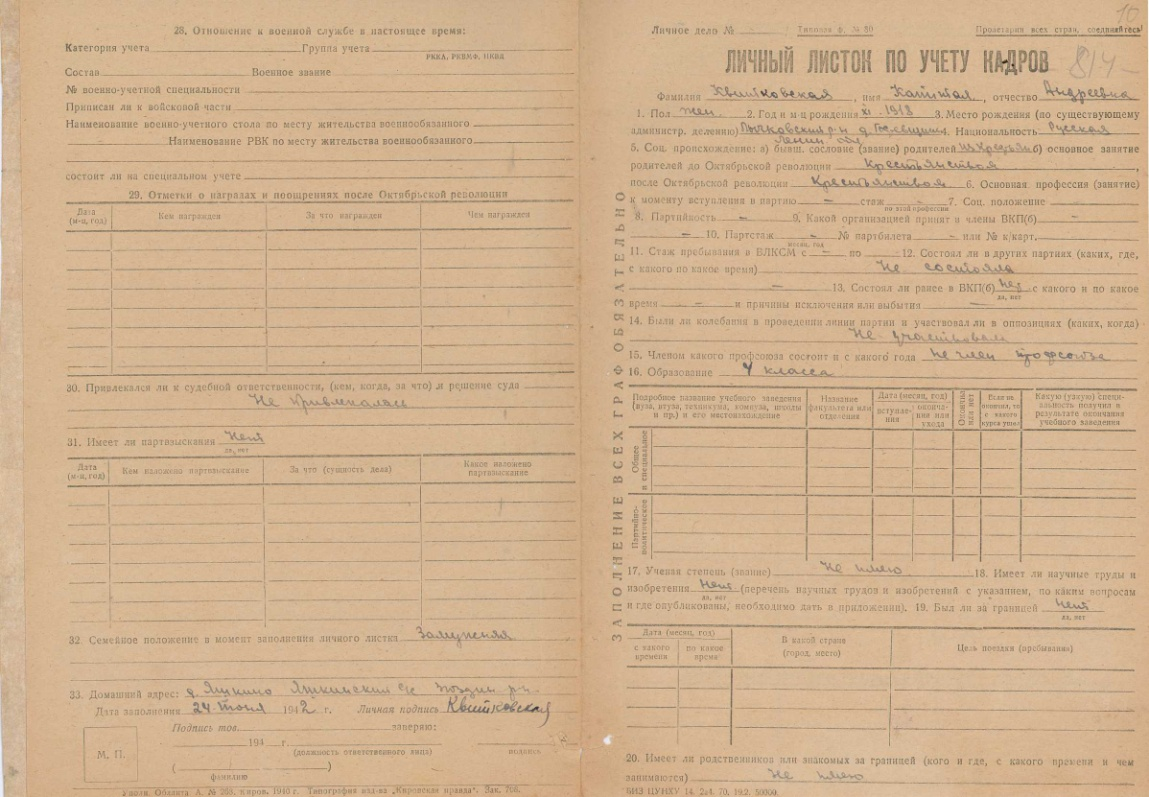 28. Отношение к военной службе в настоящее время:
Категория учета Группа учета
РККА, РКВМФ, НКВД
Состав Военное звание
№ военно-учетной специальности
Приписан ли к войсковой части
Наименование военно-учетного стола по месту жительства военнообязанного
Наименование РВК по месту жительства военнообязанного
состоит ли на специальном учете
29. Отметки о наградах и поощрениях после Октябрьской революции
Дата (м-ц, год) Кем награжден За что награжден Чем награжден
30. Привлекался ли к судебной ответственности, (кем, когда, за что) и решение суда
Не привлекалась
31. Имеет ли партвзыскания Нет
да, нет
Дата (м-ц, год) Кем наложено партвзыскание За что (сущность дела) Какое наложено партвзыскание
32 Семейное положение в момент заполнения личного листка Замужняя
33. Домашний адрес: д. Яшкино Яшкинский с/с
Дата заполнения 24 1942 г. Личная подпись Квитковская
Подпись тов. заверяю:
194 г.
(должность ответственного лица) подпись
М. П.
( )
фамилию
Уполн. Обллита А. № 268. Киров. 1940 г. Типография изд-ва „Кировская правда“. Зак. 700.
10
Личное дело № Типовая ф. № 30 Пролетарии всех стран, соединяйтесь!
ЛИЧНЫЙ ЛИСТОК ПО УЧЕТУ КАДРОВ 814
Фамилия Квитковская, имя, отчество Андреевна
1. Пол жен. 2. Год и м-ц рождения XI 1918 3. Место рождения (по существующему
административ. делению) Лычковский р-н д. 4. Национальность Русская
Ленин. обл.
5. Соц. происхождение: а) бывш. сословие (звание) родителей из крестьян б) основное занятие
родителей до Октябрьской революции Крестьянствоя
после Октябрьской революции Крестьянствоя 6. Основная профессия (занятие)
к моменту вступления в партию – стаж – 7. Соц. положение –
по этой профессии
8. Партийность – 9. Какой организацией принят в члены ВКП(б) –
– 10. Партстаж – № партбилета – или № к/карт.
месяц, год
11. Стаж пребывания в ВЛКСМ с – по – 12. Состоял ли в других партиях (каких, где,
с какого по какое время) Не состояла
– 13. Состоял ли ранее в ВКП(б) нет с какого и по какое
да, нет
время – и причины исключения или выбытия –
14. Были ли колебания в проведении линии партии и участвовал ли в оппозициях (каких, когда)
Не участвовал
15. Членом какого профсоюза состоит и с какого года Не член профсоюза
16. Образование 4 класса
Подробное название учебного заведения (вуза, втуза, техникума, комвуза, школы и пр.) и его местонахождение Название факультета или отделения Дата (месяц, год) вступления окончания или ухода Окончил или нет Если не окончил, то с какого курса ушел Какую (узкую) специальность получил в результате окончания учебного заведения
Общее и специальное
Партийно-политическое
ЗАПОЛНЕНИЕ ВСЕХ ГРАФ ОБЯЗАТЕЛЬНО
17. Ученая степень (звание) Не имею 18. Имеет ли научные труды и
изобретения Нет (перечень научных трудов и изобретений с указанием, по каким вопросам
да, нет
и где опубликованы, необходимо дать в приложении). 19. Был ли за границей Нет
да, нет
Дата (месяц, год) с какого времени по какое время В какой стране (город, место) Цель поездки (пребывания)
20. Имеет ли родственников или знакомых за границей (кого и где, с какого времени и чем
занимаются) Не имею